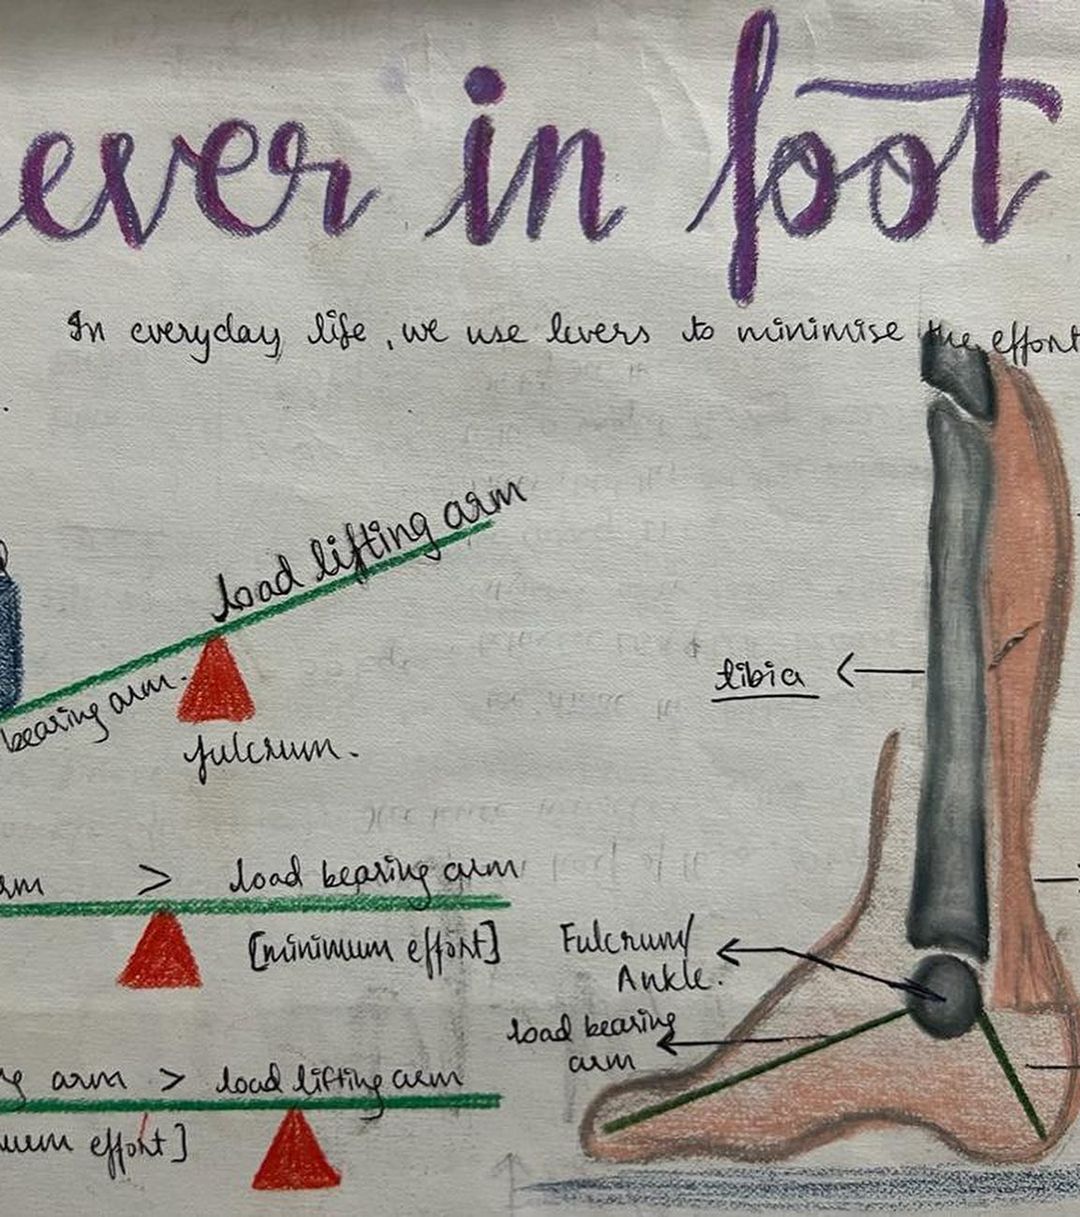 ever in foot
In everyday life, we use levers to minimise the effort
load lifting arm
bearing arm.
fulcrum.
tibia
rm > load bearing arm
[minimum effort]
Fulcrum/
Ankle.
load bearing
arm
g arm > load lifting arm
mum effort]